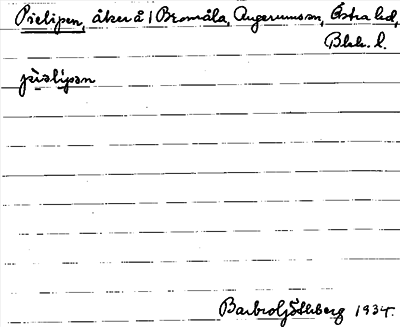 Pielipen, åker å 1 Bromåla, Augerums sn, Östra hd,
Blek. l.
pìəlipən
Barbro Göthberg 1934.